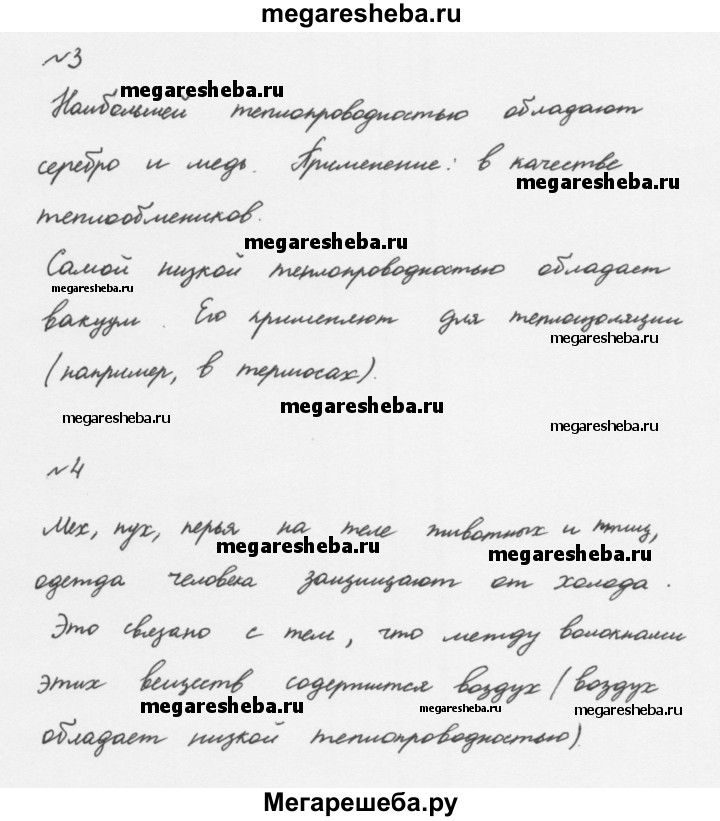 megaresheba.ru
№3
megaresheba.ru
Наибольшей теплопроводностью обладают
серебро и медь. Применение: в качестве
megaresheba.ru
теплообмеников.
megaresheba.ru
Самой низкой теплопроводностью обладает
megaresheba.ru
вакуум. Его применяют для теплоизоляции
megaresheba.ru
(например, в термосах).
megaresheba.ru
megaresheba.ru
megaresheba.ru
№4
Мех, пух, перья на теле животных и птиц,
megaresheba.ru
megaresheba.ru
одежда человека защищают от холода.
Это связано с тем, что между волокнами
этих веществ содержится воздух (воздух
megaresheba.ru
megaresheba.ru
megaresheba.ru
обладает низкой теплопроводностью).
Мегарешеба.ру